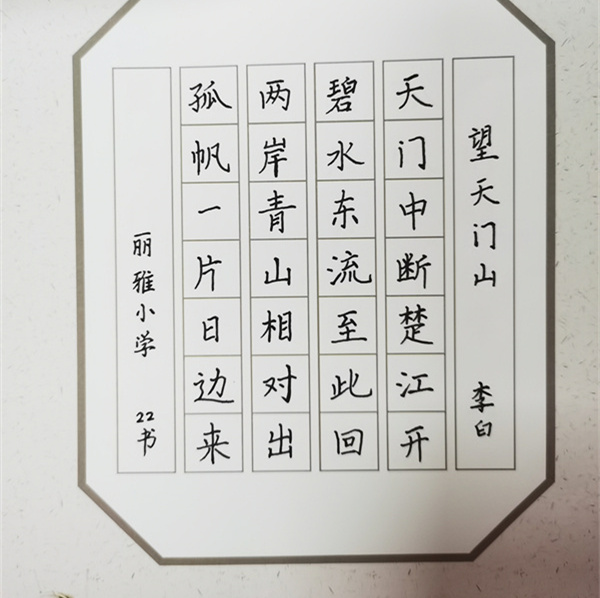 望天门山 李白
天门中断楚江开
碧水东流至此回
两岸青山相对出
孤帆一片日边来
丽雅小学 22书